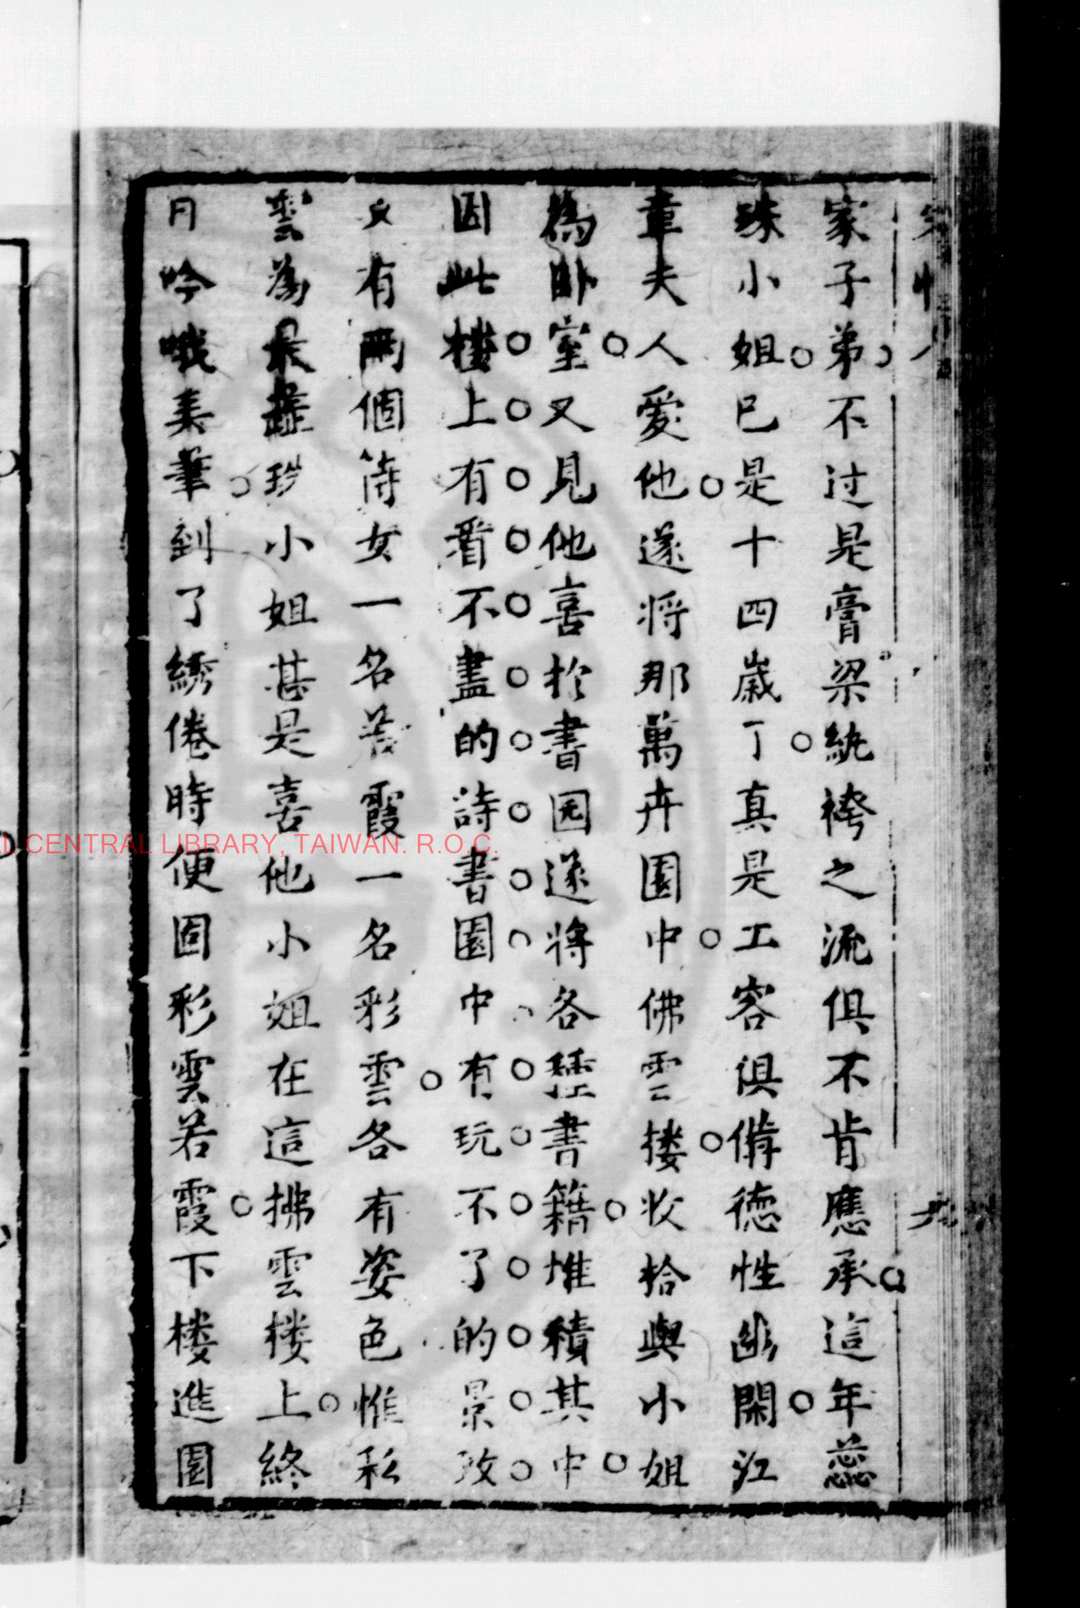 家子弟不过是膏粱紈袴之流俱不肯應承這年蕊
珠小姐已是十四歲了真是工容俱備德性幽閑江
章夫人愛他遂将那萬卉園中佛雲楼收拾與小姐
為卧室又見他喜於書园遂將各種書籍堆積其中
因此楼上有看不盡的詩書園中有玩不了的景致
又有兩個侍女一名若霞一名彩雲各有姿色惟彩
雲為最蕊珠小姐甚是喜他小姐在這拂雲楼上終
日吟哦美筆到了綉倦時便同彩雲若霞下楼進園
AL CENTRAL LIBRARY, TAIWAN. R.O.C.